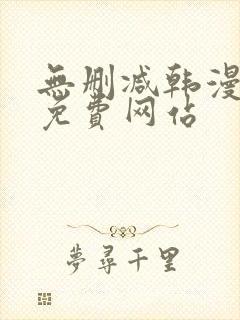 無删减韩漫
免費网站
夢尋千里